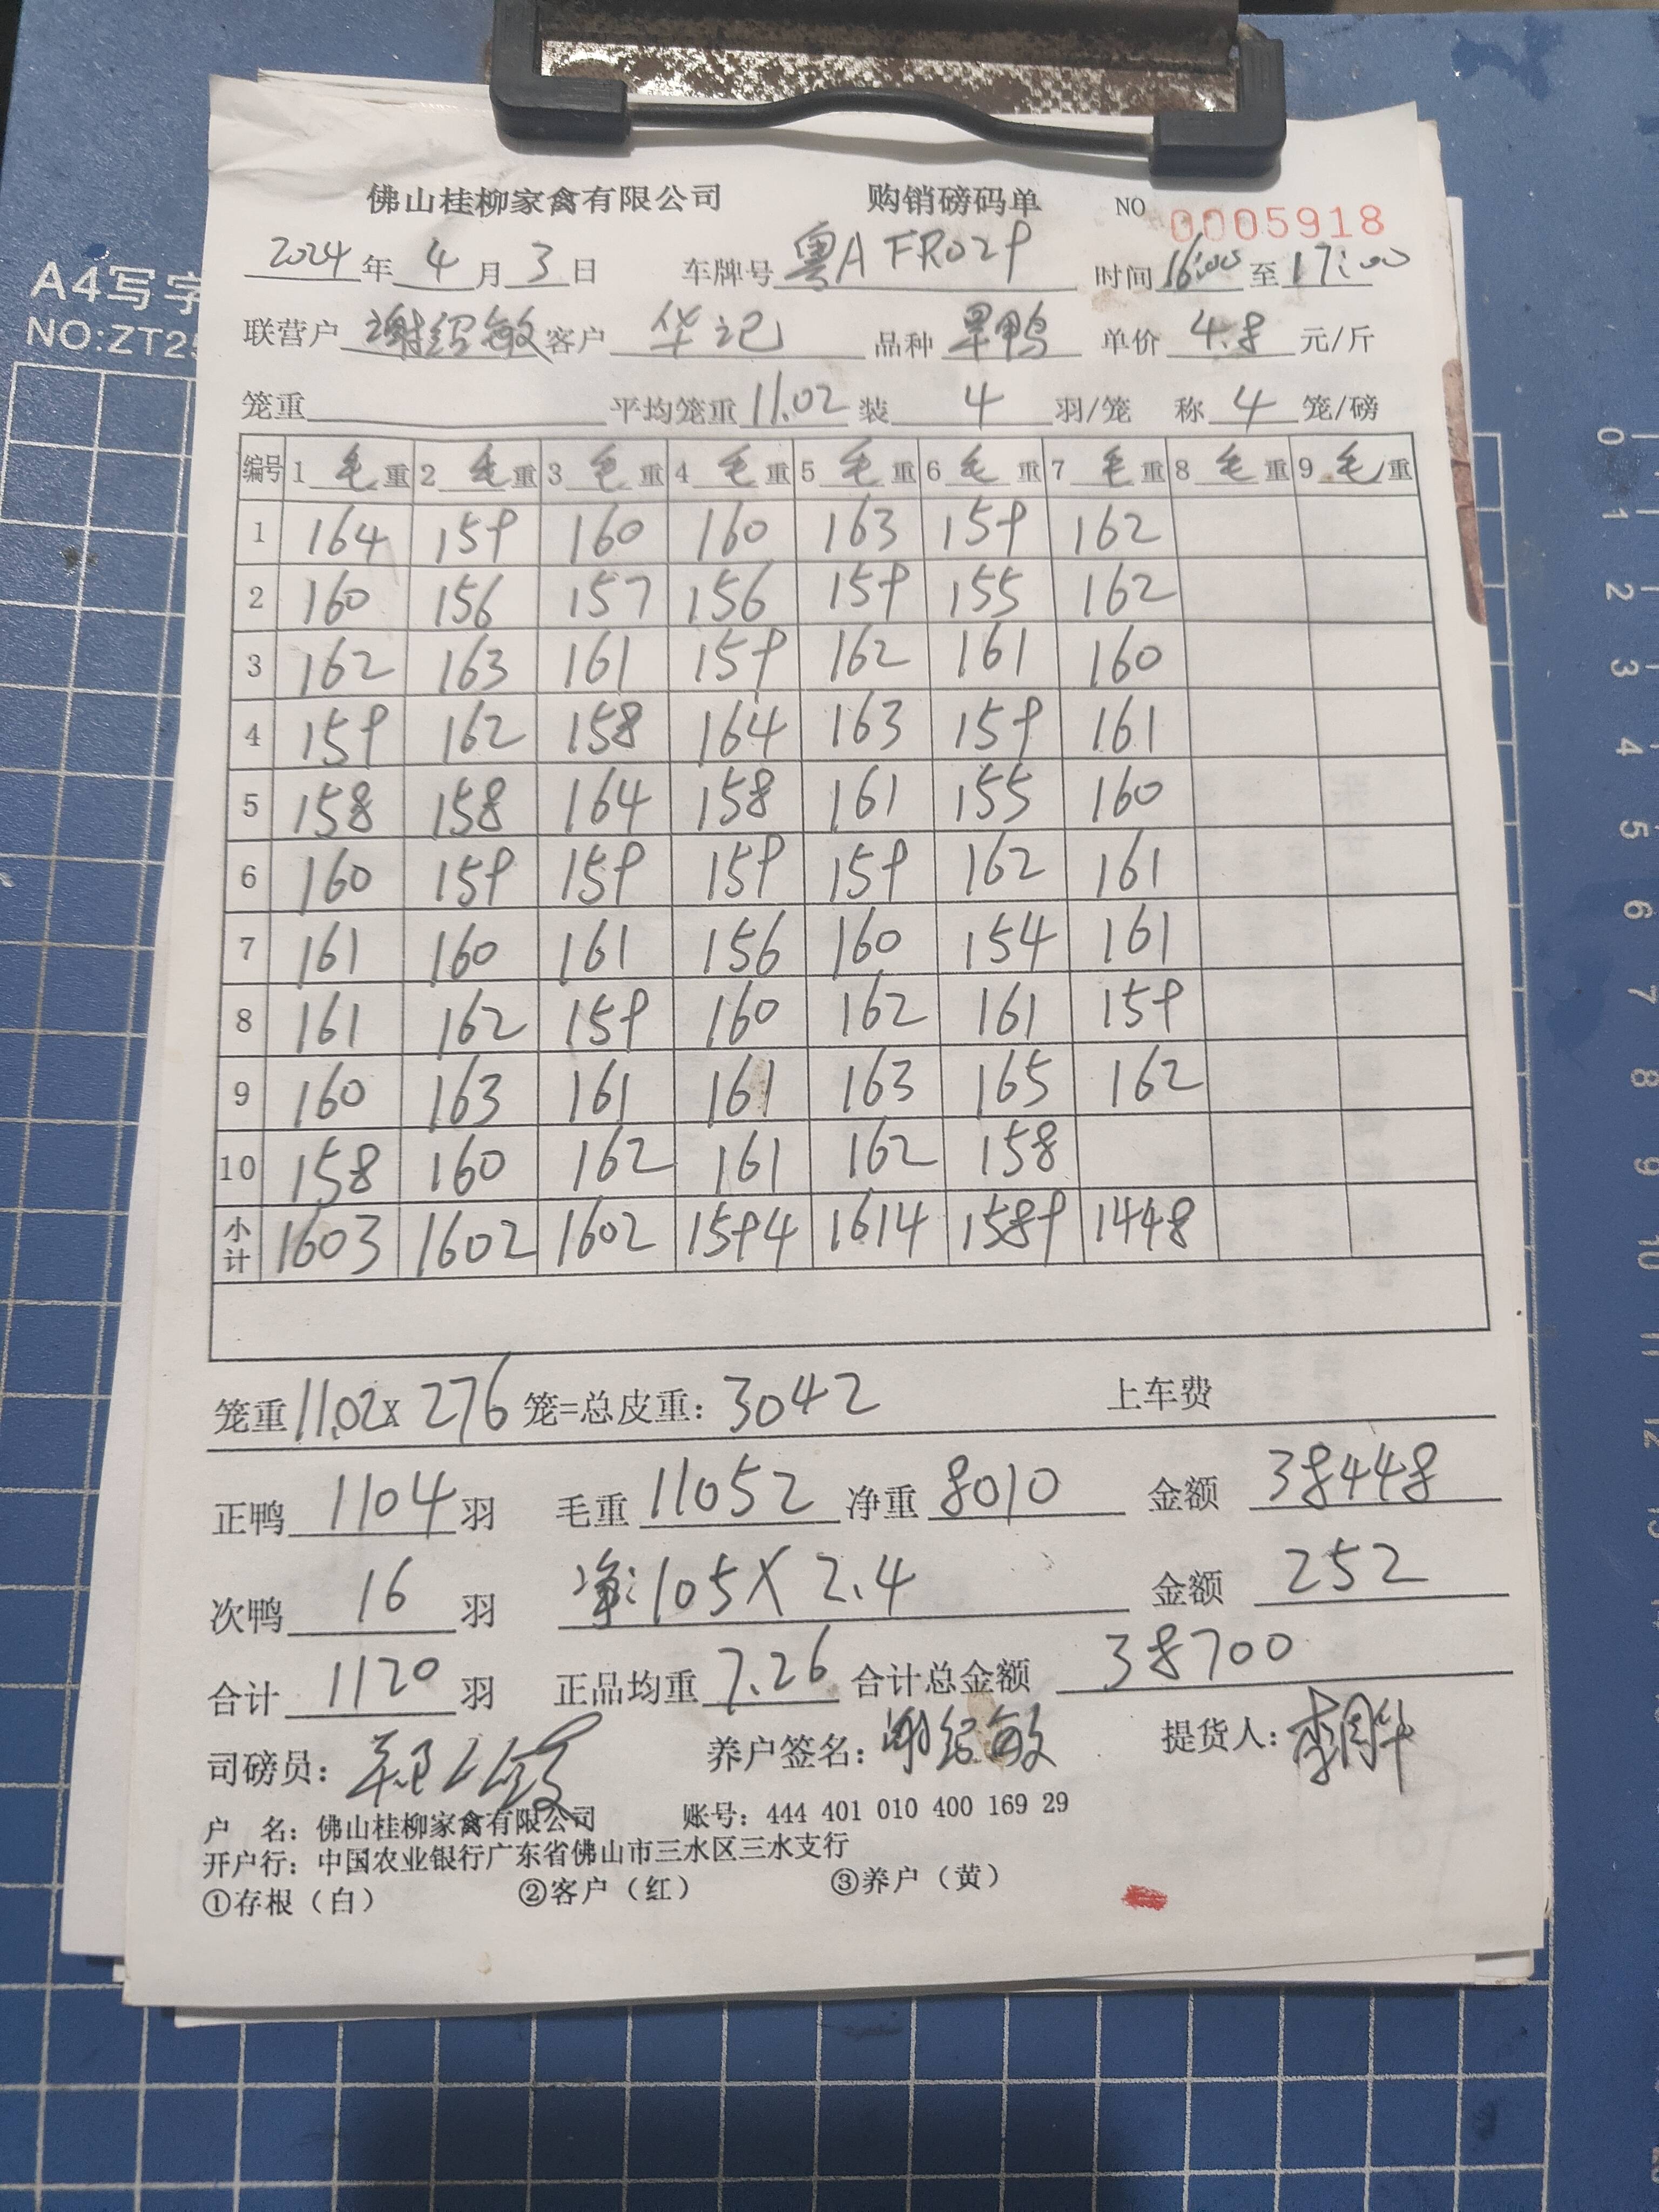 佛山桂柳家禽有限公司 购销磅码单 NO 0005918
2024年4月3日 车牌号 粤A FR029 时间 16:00 至 17:00
A4写字
NO:ZT25
联营户 谢绍敏 客户 华记 品种 旱鸭 单价 4.8 元/斤
笼重 平均笼重 11.02 装 4 羽/笼 称 4 笼/磅
编号 1 毛重 2 毛重 3 毛重 4 毛重 5 毛重 6 毛重 7 毛重 8 毛重 9 毛重
1 164 159 160 160 163 159 162
2 160 156 157 156 159 155 162
3 162 163 161 159 162 161 160
4 159 162 158 164 163 159 161
5 158 158 164 158 161 155 160
6 160 159 159 159 159 162 161
7 161 160 161 156 160 154 161
8 161 162 159 160 162 161 159
9 160 163 161 161 163 165 162
10 158 160 162 161 162 158
小计 1603 1602 1602 1594 1614 1589 1448
笼重 11.02 x 276 笼=总皮重: 3042 上车费
正鸭 1104 羽 毛重 11052 净重 8010 金额 38448
次鸭 16 羽 净: 105 X 2.4 金额 252
合计 1120 羽 正品均重 7.26 合计总金额 38700
司磅员: 养户签名: 谢绍敏 提货人:
户 名: 佛山桂柳家禽有限公司 账号: 444 401 010 400 169 29
开户行: 中国农业银行广东省佛山市三水区三水支行
①存根（白） ②客户（红） ③养户（黄）
0
1
2
3
4
5
6
7
8
9
10
11
12
13